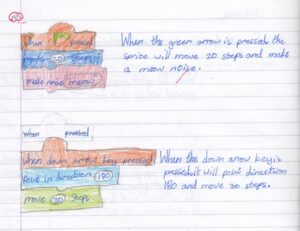 when pressed
steps
make noise "meow"
When the green arrow is pressed the
sprite will move 20 steps and make
a meow noise.
when pressed
when down arrow key pressed
Point in direction 180
move 30 steps
When the down arrow key is
pressed it will point direction
180 and move 30 steps.